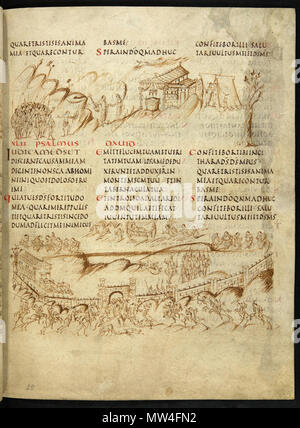 QUARETRISTISESANIMA
MEAETQUARECONTUR
BASME:
SPERAINDOQMADHUC
CONFITEBORILLISALU
TARIUULTUSMEIETDSMS
XLII PSALMUS DAVID
IUDICAMEDSET
DISCERNECAUSAMMEAM
DEGENTENONSCAABHOMI
NEINIQUOETDOLOSOERU
EME
QUIATUESDSFORTITUDO
MEAQUAREMEREPPULIS
TIETQUARETRISTISINCEDO
DUMADFLIGITMEINIMICUS
EMITTELUCEMTUAMETUERI
TATEMTUAMIPSAMEDEDU
XERUNTETADDUXERIN
MONTEMSCMTUUETIN
TABERNACULATUA
ETINTROIBOADALTAREDI
ADDMQUILAETIFICAT
IUUENTUTEMMEAM
CONFITEBORTIBIIN
CITHARADSDSMEUS
QUARETRISTISESANIMA
MEAETQUARECONTUR
BASME:
SPERAINDOQMADHUC
CONFITEBORILLISALU
TARIUULTUSMEIETDSMS